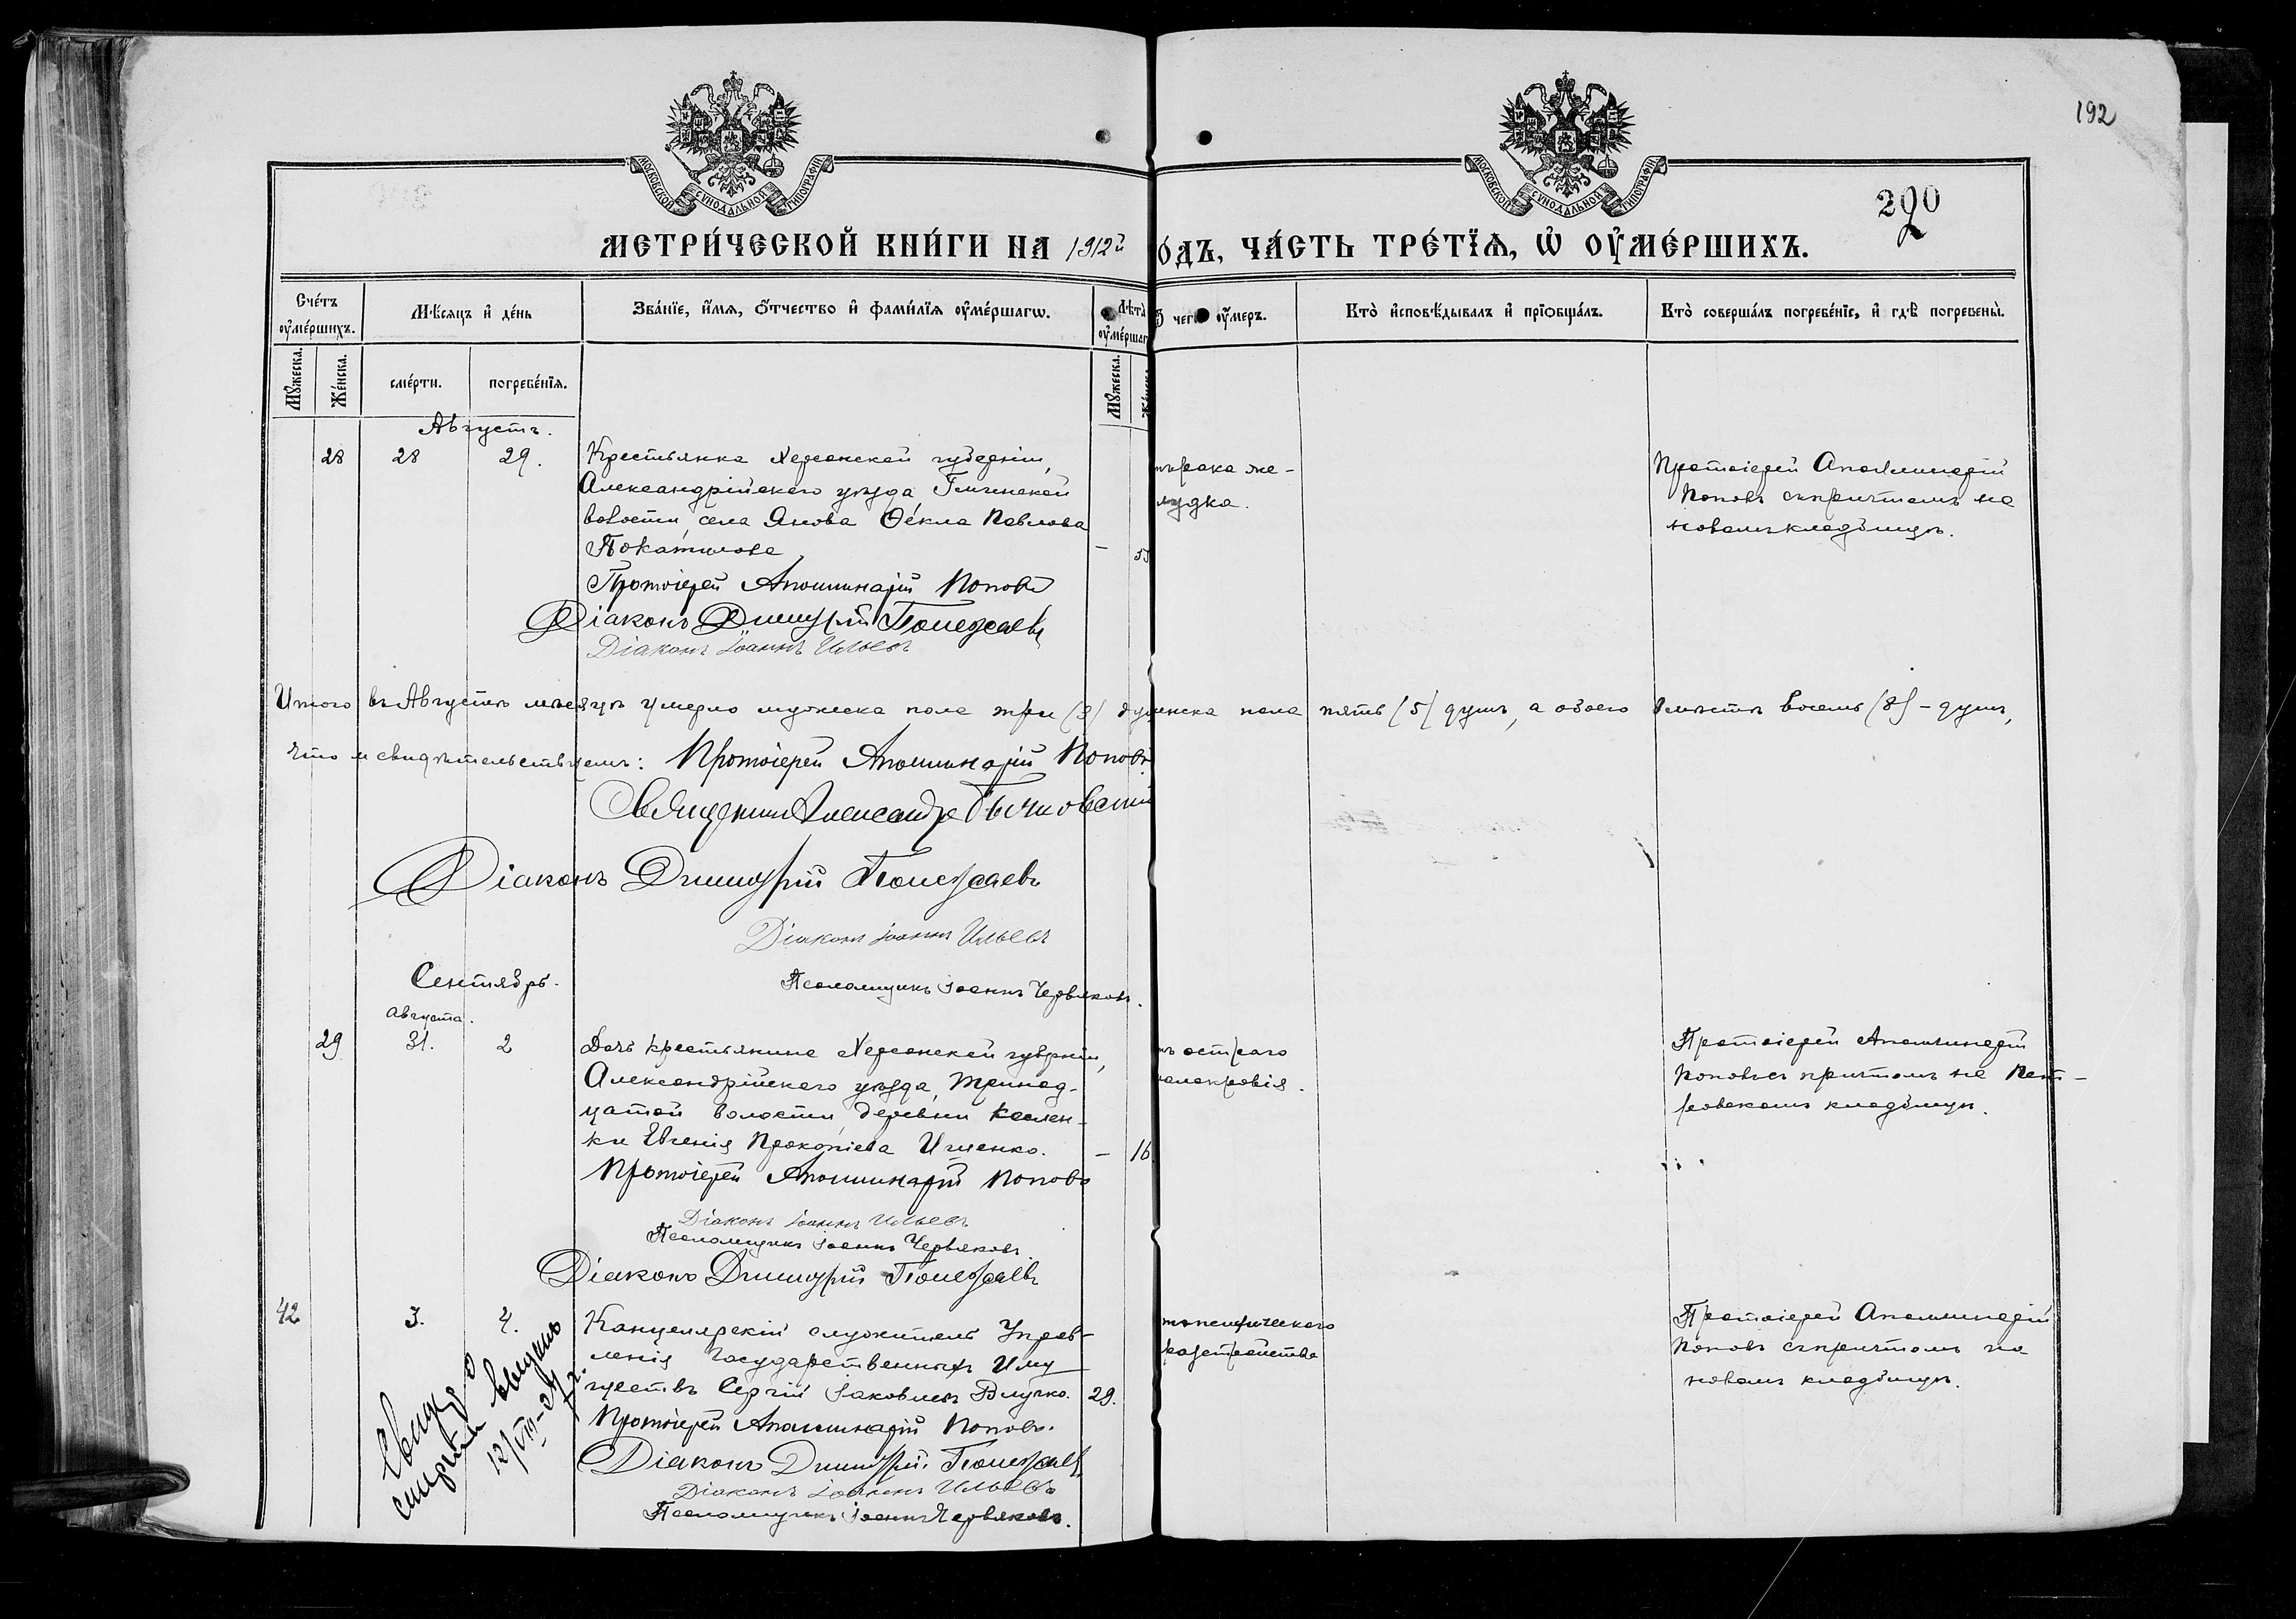 192
МОСКОВСКОЙ СѴНОДАЛЬНОЙ ТИПОГРАФІИ
МОСКОВСКОЙ СѴНОДАЛЬНОЙ ТИПОГРАФІИ
290
МЕТРИ́ЧЕСКОЙ КНИ́ГИ НА 1912й
О́ДЪ, ЧА́СТЬ ТРЕ́ТЇѦ, Ѡ҆ ОУ҆МЕ́РШИХЪ.
Сче́тъ оу҆ме́ршихъ.
Мѣ́сяцъ и҆ де́нь
Зва́нїе, и҆́мѧ, ѻ҆́тчество и҆ фами́лїѧ оу҆ме́ршагѡ.
Лѣ́та оу҆ме́ршаг
чегѡ̀ оу҆́меръ.
Кто̀ и҆сповѣ́дывалъ и҆ прїѡбща́лъ.
Кто̀ соверша́лъ погребе́нїе, и҆ гдѣ̀ погребены̀.
Мꙋ́жеска.
Же́нска.
сме́рти.
погребе́нїѧ.
Мꙋ́жеска.
Августъ.
28 28 29.
Крестьянка Херсонской губерніи,
Александрійскаго уѣзда
волости, села Янова Ѳекла Павлова
—
Протоіерей Аполлинарій Поповъ
Діаконъ Димитрій
Діаконъ Іоаннъ Ильевъ
рака же-
лудка.
Протоіерей Аполлинарій
Поповъ съ причтомъ на
новомъ кладбищѣ.
Итого въ Августѣ мѣсяцѣ умерло мужеска пола три (3) женска пола пять (5) душъ, а обоего вмѣстѣ восемь (8) - душъ,
что и свидѣтельствуемъ: Протоіерей Аполлинарій Поповъ
Священникъ Александръ
Діаконъ Димитрій
Діаконъ Іоаннъ Ильевъ
Псаломщикъ Іоаннъ Червяковъ.
Сентябрь.
августа.
29 31. 2
Дочь крестьянина Херсонской губерніи,
Александрійскаго уѣзда, Тринад-
цатой волости, деревни
ки Евгенія Прокопіева Ищенко. — 16
Протоіерей Аполлинарій Поповъ
Діаконъ Іоаннъ Ильевъ
Псаломщикъ Іоаннъ Червяковъ.
Діаконъ Димитрій
остраго
малокровія.
Протоіерей Аполлинарій
Поповъ съ причтомъ на Пет-
ровскомъ кладбищѣ.
42 3. 4.
Канцелярскій служитель Управ-
ленія Государственныхъ Иму
ществъ Сергій Іаковлевъ 29.
Протоіерей Аполлинарій Поповъ.
Діаконъ Димитрій
Діаконъ Іоаннъ Ильевъ
Псаломщикъ Іоаннъ Червяковъ.
разстройства
Протоіерей Аполлинарій
Поповъ съ причтомъ на
новомъ кладбищѣ.
Свид. о
смерти выдано